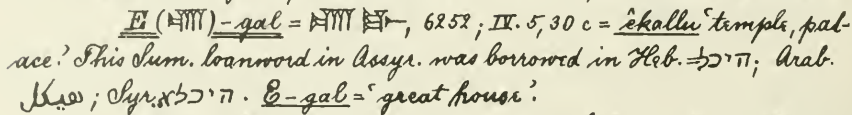 E (𒂍)-gal = 𒂍 𒃲, 6252; IV. 5, 30 c = êkallu ‘temple, pal-
ace.’ This Sum. loanword in Assyr. was borrowed in Heb. היכל; Arab.
هيكل; Syr. היכלא. E-gal = ‘great house’.